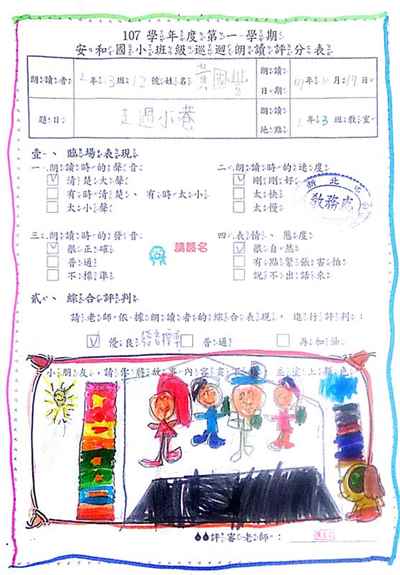 107學年度第一學期
安和國小班級巡迴朗讀評分表
朗讀者: 2年3班12號姓名 黃
朗讀日期: 107年 月19日
題目:
朗讀地點: 2年3班教室
壹、臨場表現
一、朗讀時的聲音
☑清楚大聲
□有時清楚、有時太小
□太小聲
二、朗讀時的速度
☑剛剛好
□太快
□太慢
教務處
三、朗讀時的發音
☑很正確
□普通
□不標準
請簽名
四、表情、態度
☑很自然
□有點緊張害怕
□說不出話來
貳、綜合評判
請老師依據朗讀者的綜合表現,進行評判:
☑優良 發音標準 □普通 □再加油
小朋友,請你將故事內容畫 塗上顏色
評審老師: